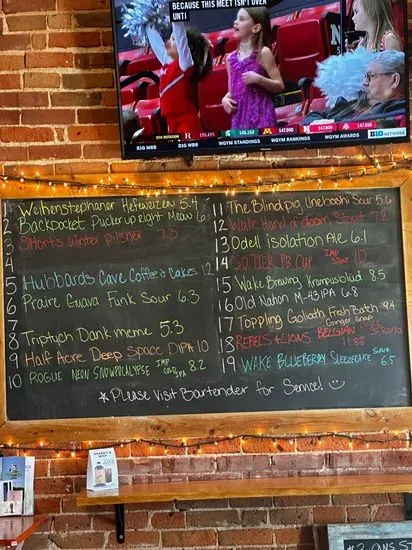 BECAUSE THIS MEET ISN'T OVER
UNTI
N
R ROTATION R 195.275 147.900 147.800 147.350
B1G MBB WGYM STANDINGS WGYM RANKINGS WGYM AWARDS B1G NETWORK
1 Weihenstephaner Hefeweizen 5.4
2 Backpocket Puckerup eight Meow 6
3 Shorts Winter pilsner 7.3
4
5 Hubbards Cave Coffee & Cakes 12
6 Prairie Guava Funk Sour 6.3
7
8 Triptych Dank meme 5.3
9 Half Acre Deep Space DIPA 10
10 ROGUE NEON SNOWPOCALYPSE IMP COLD IPA 8.2
11 The Blindpig Umeboshi Sour 5.6
12 Wake Hand of doom Stout 7.2
13 Odell isolation Ale 6.1
14 SO TIER PB CUP IMP Stout 10
15 Wake Brewing Krampusblüd 8.5
16 Old Nation M-43 IPA 6.8
17 Toppling Goliath Fresh Batch Ginger snap 9.4
18 REBELS & LIONS BELGIAN DARK STRONG 11.88
19 WAKE BLUEBERRY SLEEZECAKE SAUS 6.5
*Please Visit Bartender for Service! :)